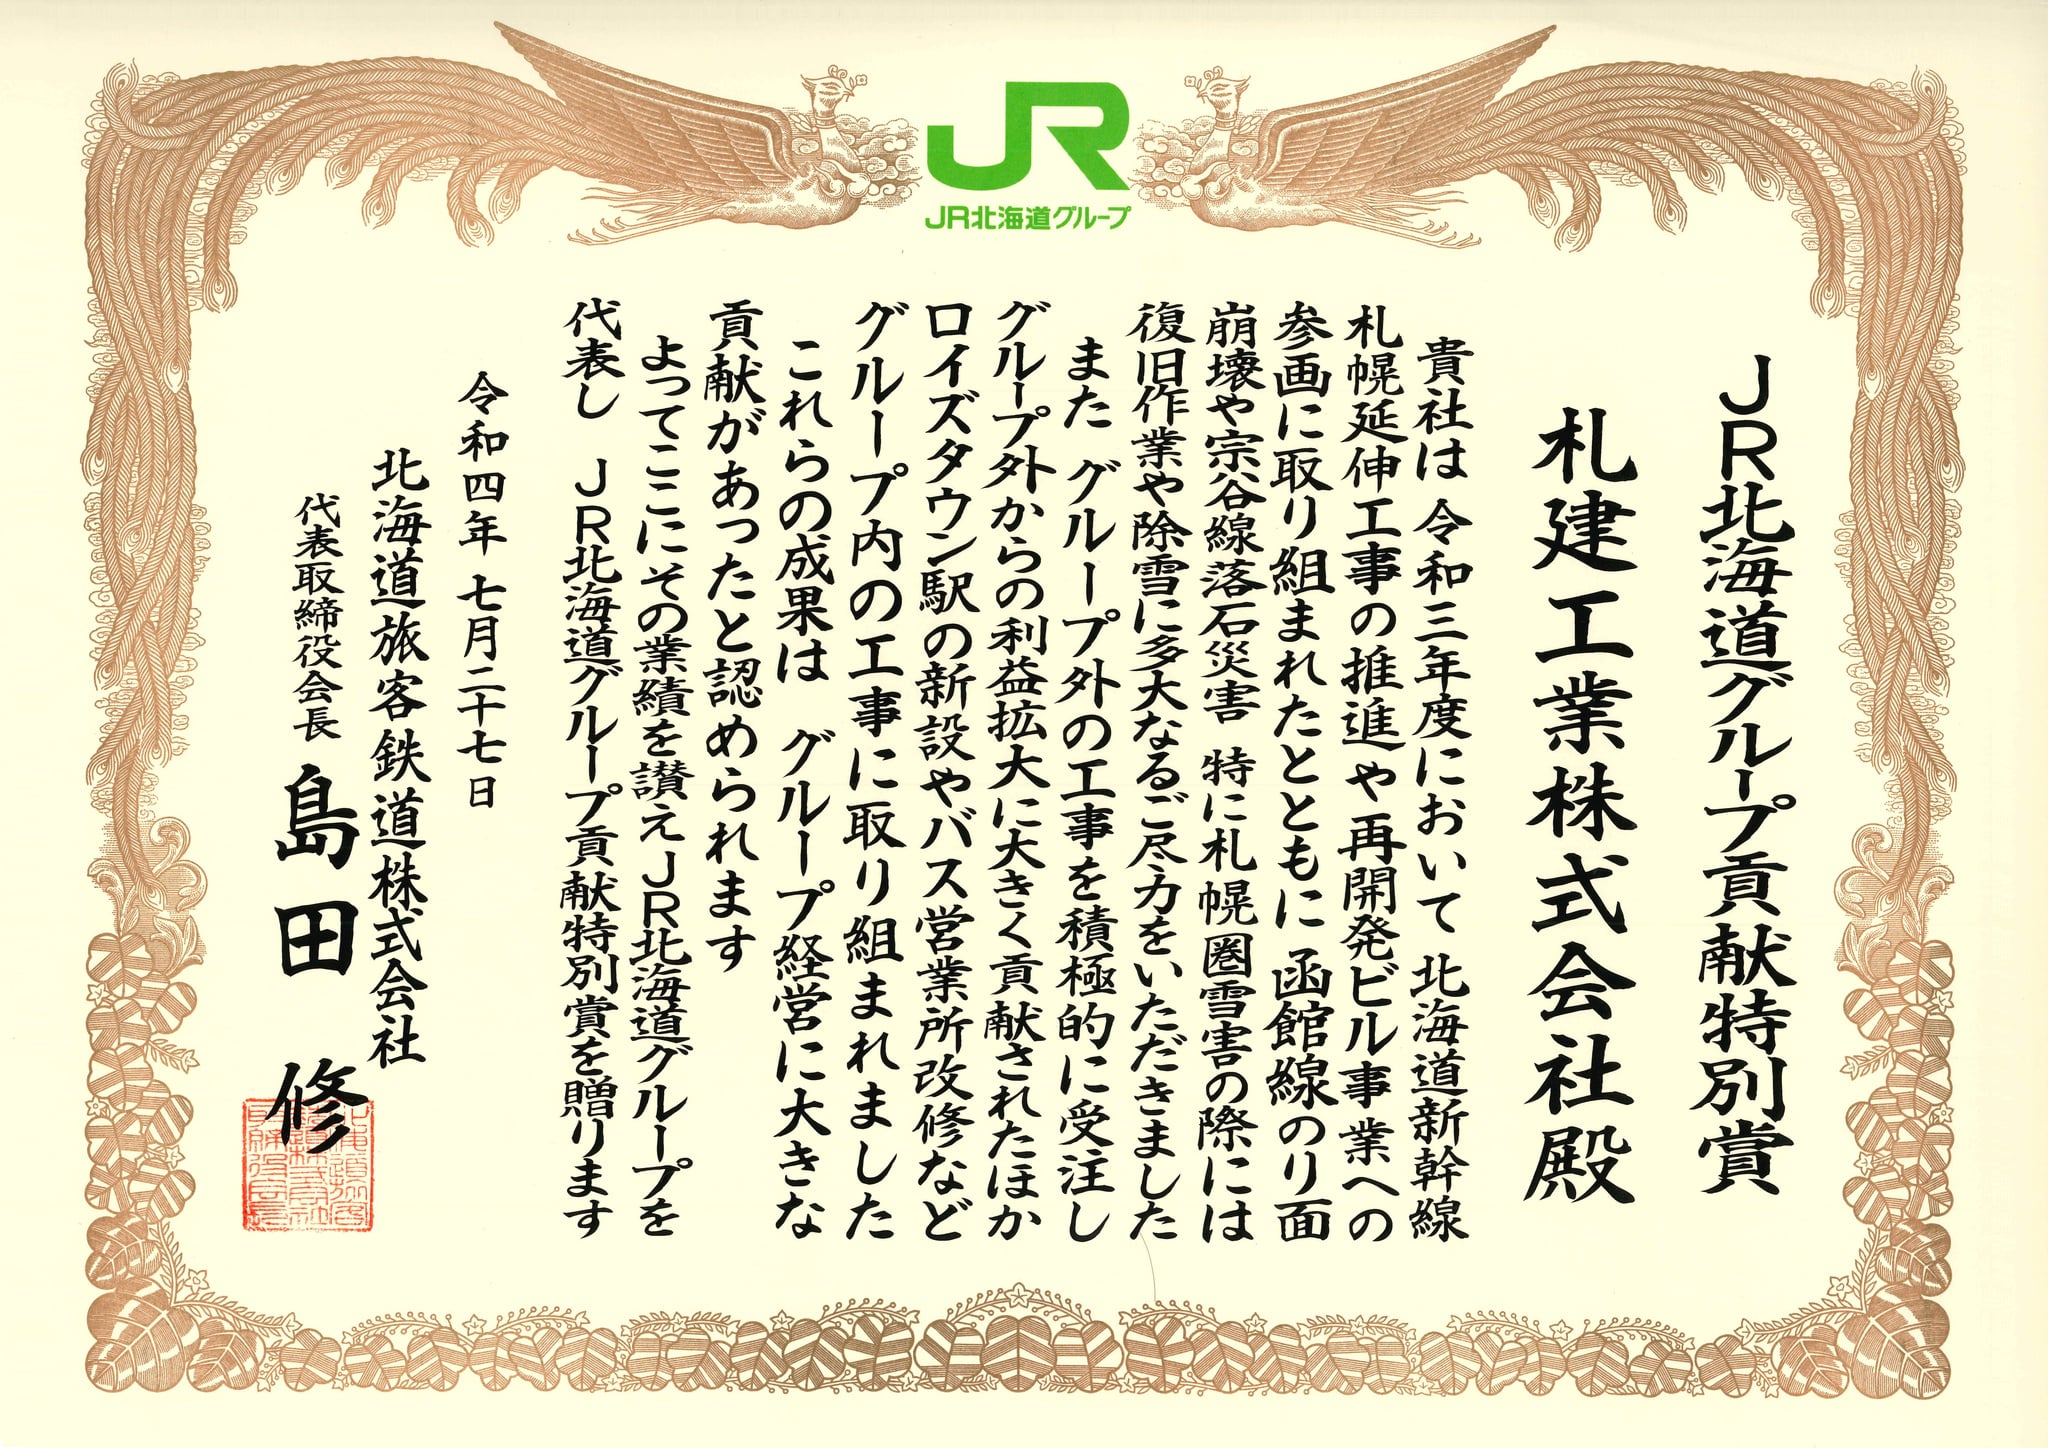 JR
JR北海道グループ
JR北海道グループ貢献特別賞
札建工業株式会社殿
貴社は 令和三年度において 北海道新幹線
札幌延伸工事の推進や再開発ビル事業への
参画に取り組まれたとともに 函館線のり面
崩壊や宗谷線落石災害 特に札幌圏雪害の際には
復旧作業や除雪に多大なるご尽力をいただきました
また グループ外の工事を積極的に受注し
グループ外からの利益拡大に大きく貢献されたほか
ロイズタウン駅の新設やバス営業所改修など
グループ内の工事に取り組まれました
これらの成果は グループ経営に大きな
貢献があったと認められます
よってここにその業績を讃えJR北海道グループを
代表し JR北海道グループ貢献特別賞を贈ります
令和四年 七月二十七日
北海道旅客鉄道株式会社
代表取締役会長 島田 修